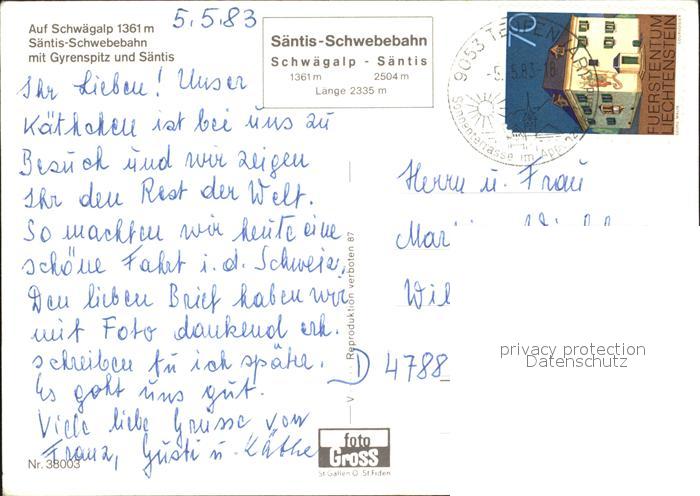 Auf Schwägalp 1361 m
Säntis-Schwebebahn
mit Gyrenspitz und Säntis
5.5.83
Säntis-Schwebebahn
Schwägalp - Säntis
1361 m 2504 m
Länge 2335 m
9053 TEUFEN AR
-5.-5.83-18
Sonnenterrasse im App.
70
FUERSTENTUM
LIECHTENSTEIN
Ihr Lieben! Unser
Käthchen ist bei uns zu
Besuch und wir zeigen
Ihr den Rest der Welt.
So machten wir heute eine
schöne Fahrt i. d. Schweiz.
Den lieben Brief haben wir
mit Foto dankend erh.
schreiben tu ich später.
Es geht uns gut.
Viele liebe Grüsse von
Franz, Gusti u. Käthe
Herrn u. Frau
Mar
Wil
D 4788
V Reproduktion verboten 87
privacy protection
Datenschutz
foto
Gross
St.Gallen O. St.Fiden
Nr. 38003